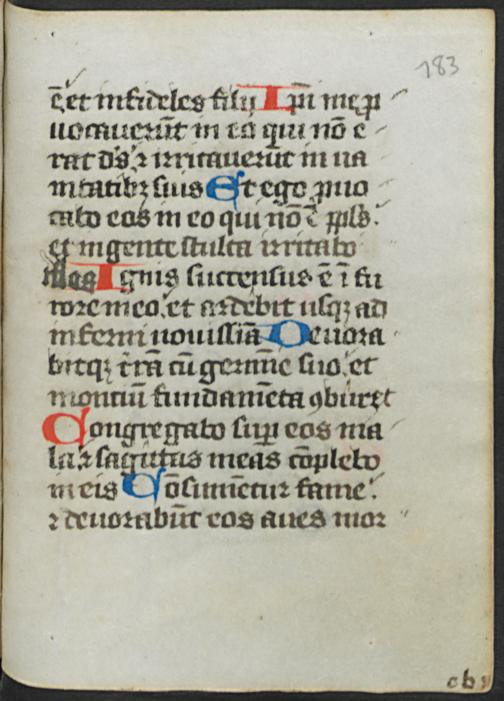 183
ē et infideles filij Ip̄i me ꝓ
uocauerūt in eo qui nō e
rat d's ꝛ irritauerūt in ua
nitatibꝫ suis Et ego ꝓuo
cabo eos in eo qui nō ē ppl's.
et in gente stulta irritabo
illos Ignis succensus ē ī fu
rore meo. et ardebit usqꝫ ad
inferni nouissīa Deuora
bitqꝫ t̄rā cū germīe suo. et
montiū fundamēta ꝯburet
Congregabo suꝑ eos ma
la. ꝛ sagittas meas cōplebo
in eis Cōsumētur fame.
ꝛ deuorabūt eos aues mor